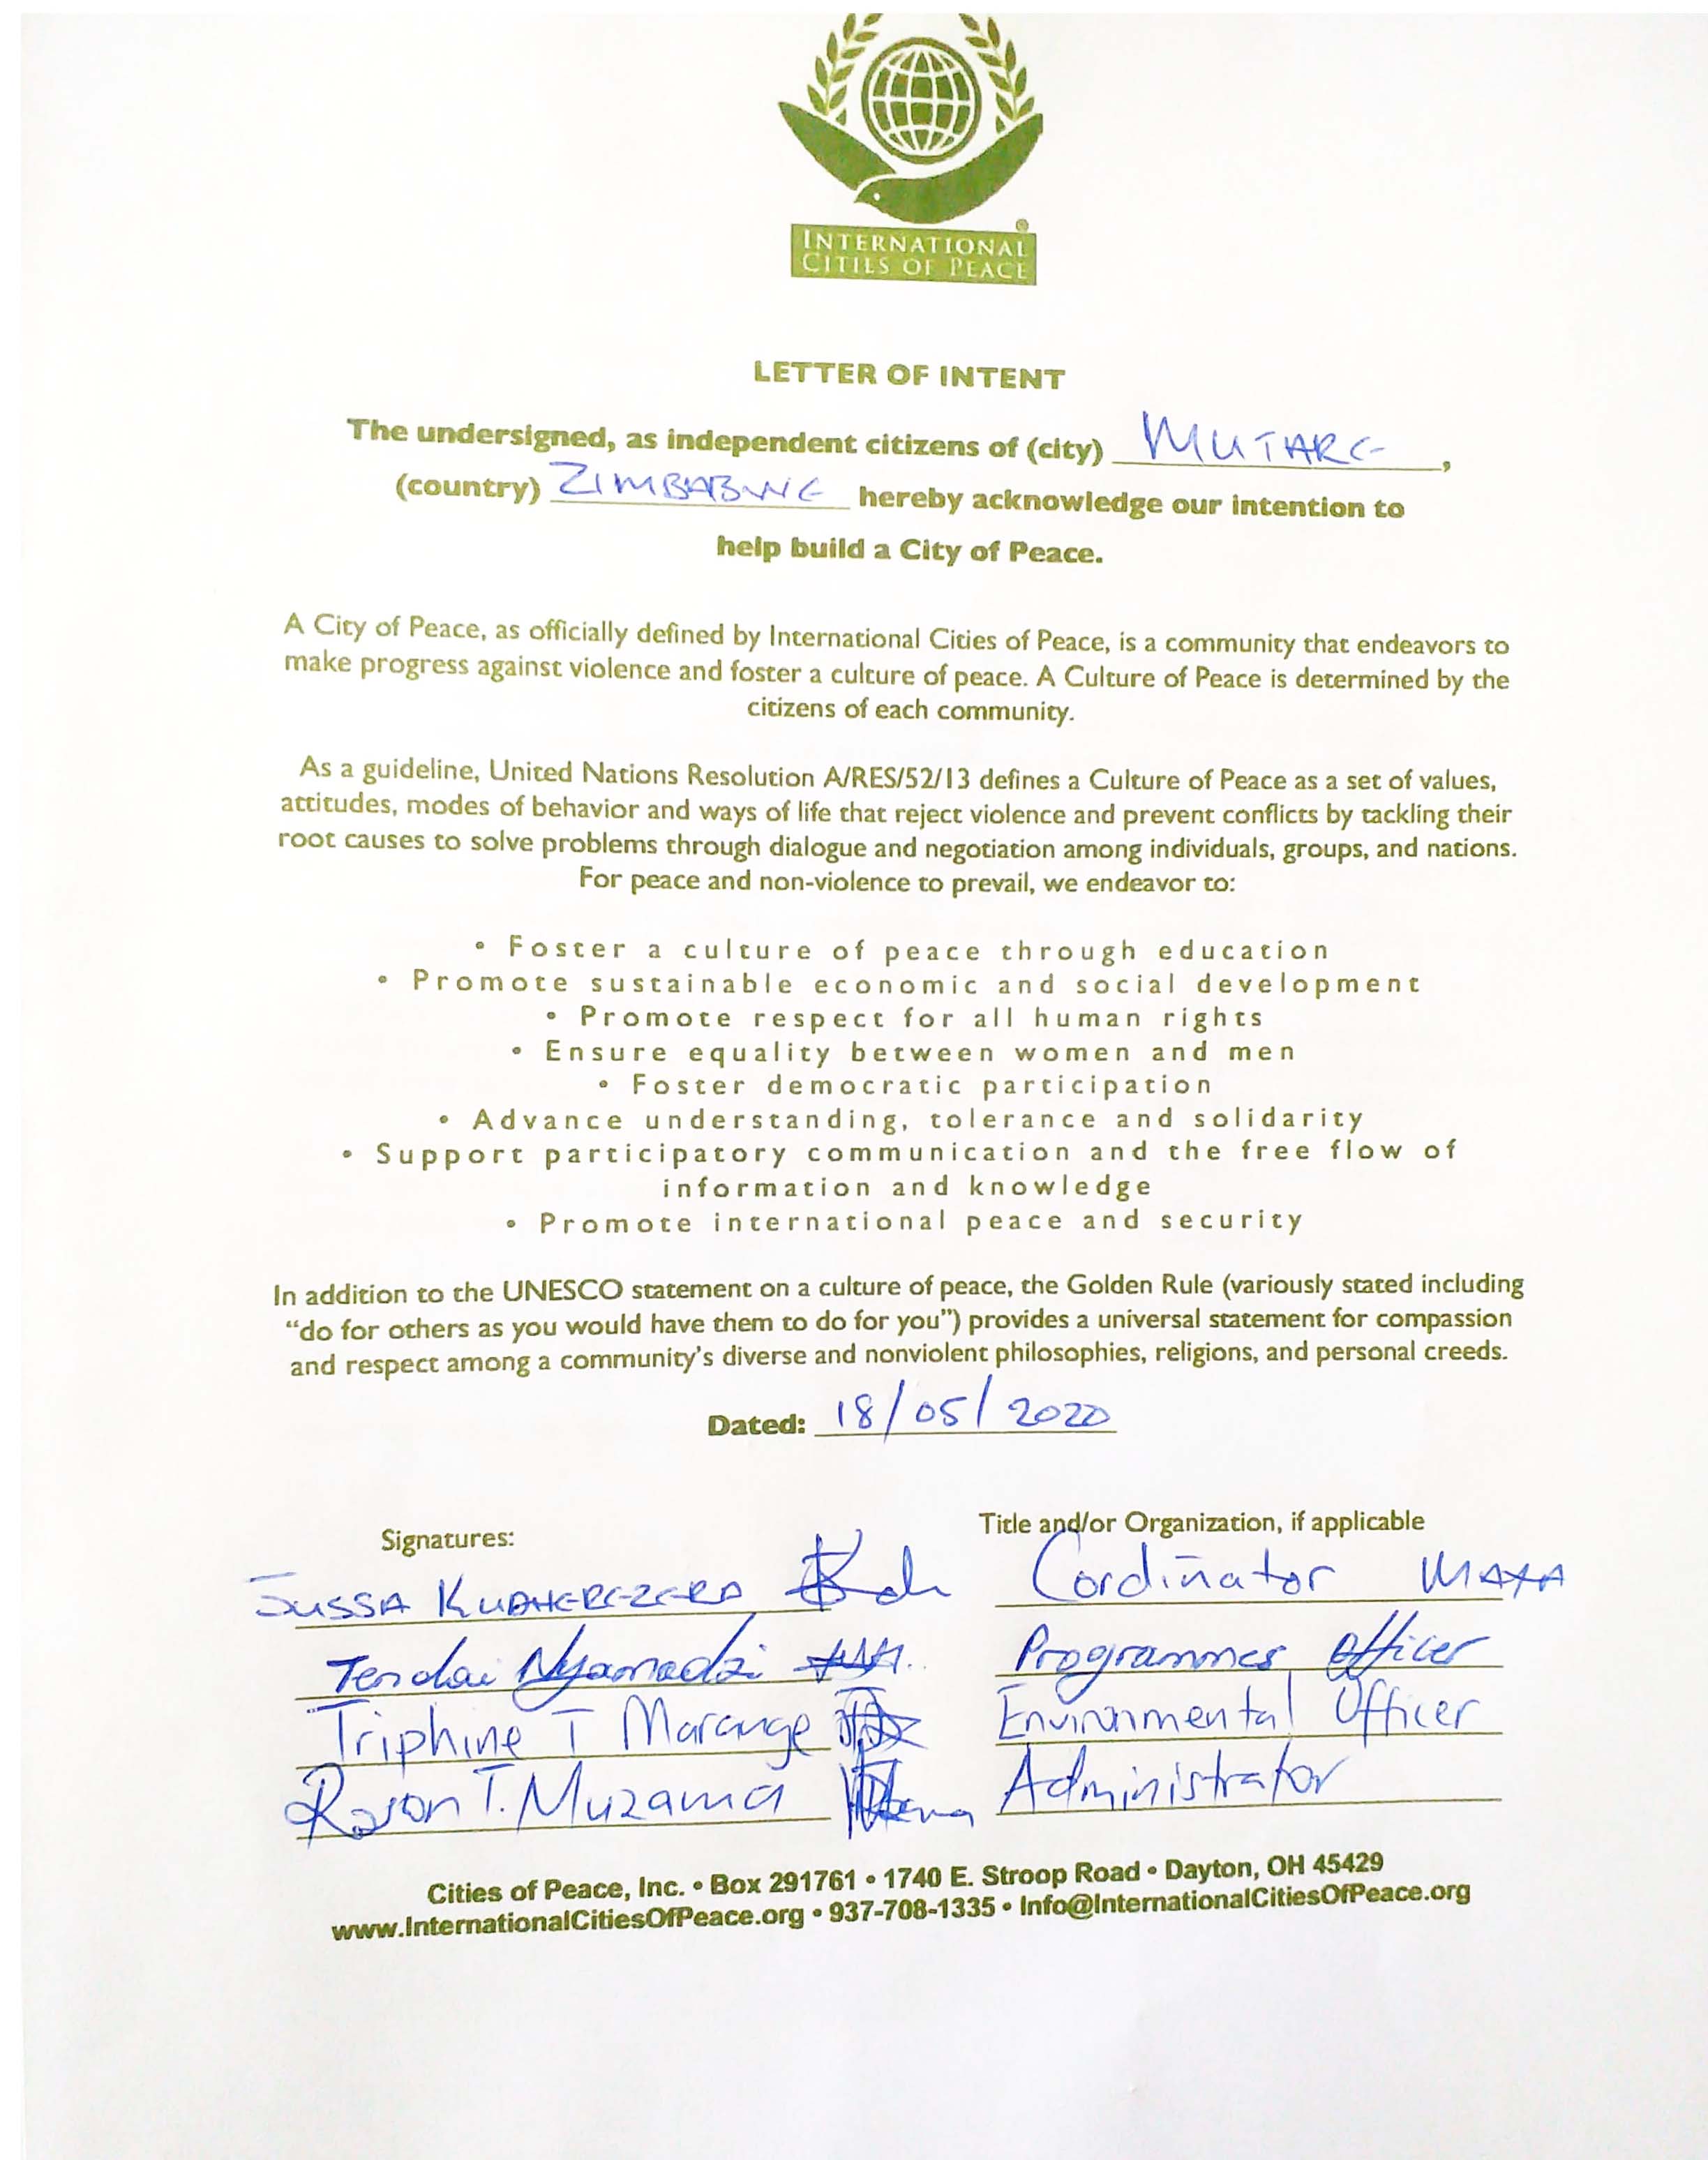 INTERNATIONAL
CITIES OF PEACE
®
LETTER OF INTENT
The undersigned, as independent citizens of (city) MUTARE,
(country) ZIMBABWE hereby acknowledge our intention to
help build a City of Peace.
A City of Peace, as officially defined by International Cities of Peace, is a community that endeavors to
make progress against violence and foster a culture of peace. A Culture of Peace is determined by the
citizens of each community.
As a guideline, United Nations Resolution A/RES/52/13 defines a Culture of Peace as a set of values,
attitudes, modes of behavior and ways of life that reject violence and prevent conflicts by tackling their
root causes to solve problems through dialogue and negotiation among individuals, groups, and nations.
For peace and non-violence to prevail, we endeavor to:
• Foster a culture of peace through education
• Promote sustainable economic and social development
• Promote respect for all human rights
• Ensure equality between women and men
• Foster democratic participation
• Advance understanding, tolerance and solidarity
• Support participatory communication and the free flow of
information and knowledge
• Promote international peace and security
In addition to the UNESCO statement on a culture of peace, the Golden Rule (variously stated including
“do for others as you would have them to do for you”) provides a universal statement for compassion
and respect among a community's diverse and nonviolent philosophies, religions, and personal creeds.
Dated: 18/05/2020
Signatures: Title and/or Organization, if applicable
JUSSA Cordinator
Tendai Nyamadzi Programmes Officer
Triphine T Marange Environmental Officer
T. Muzama Administrator
Cities of Peace, Inc. • Box 291761 • 1740 E. Stroop Road • Dayton, OH 45429
www.InternationalCitiesOfPeace.org • 937-708-1335 • Info@InternationalCitiesOfPeace.org